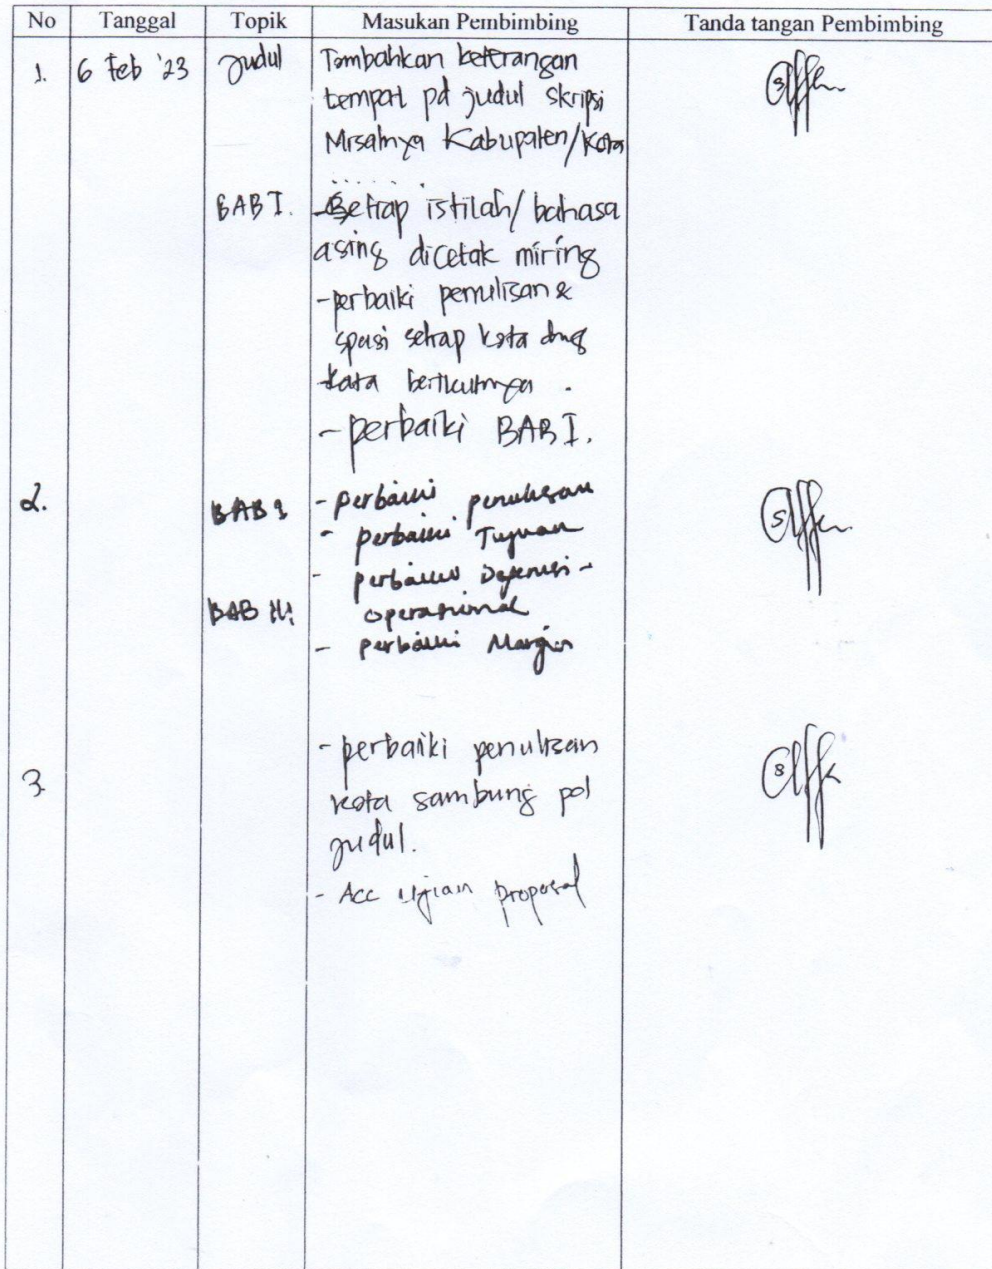 No Tanggal Topik Masukan Pembimbing Tanda tangan Pembimbing
1. 6 Feb '23 Judul Tambahkan keterangan
tempat pd judul skripsi
Misalnya Kabupaten/Kota
.......
BAB I. - Setiap istilah/bahasa
asing dicetak miring
- perbaiki penulisan &
spasi setiap kata dng
kata berikutnya.
- perbaiki BAB I.
2. BAB I - perbaiki penulisan
- perbaiki Tujuan
- perbaiki Defenisi -
BAB III operasional
- perbaiki Margin
- perbaiki penulisan
3. kata sambung pd
judul.
- Acc ujian proposal